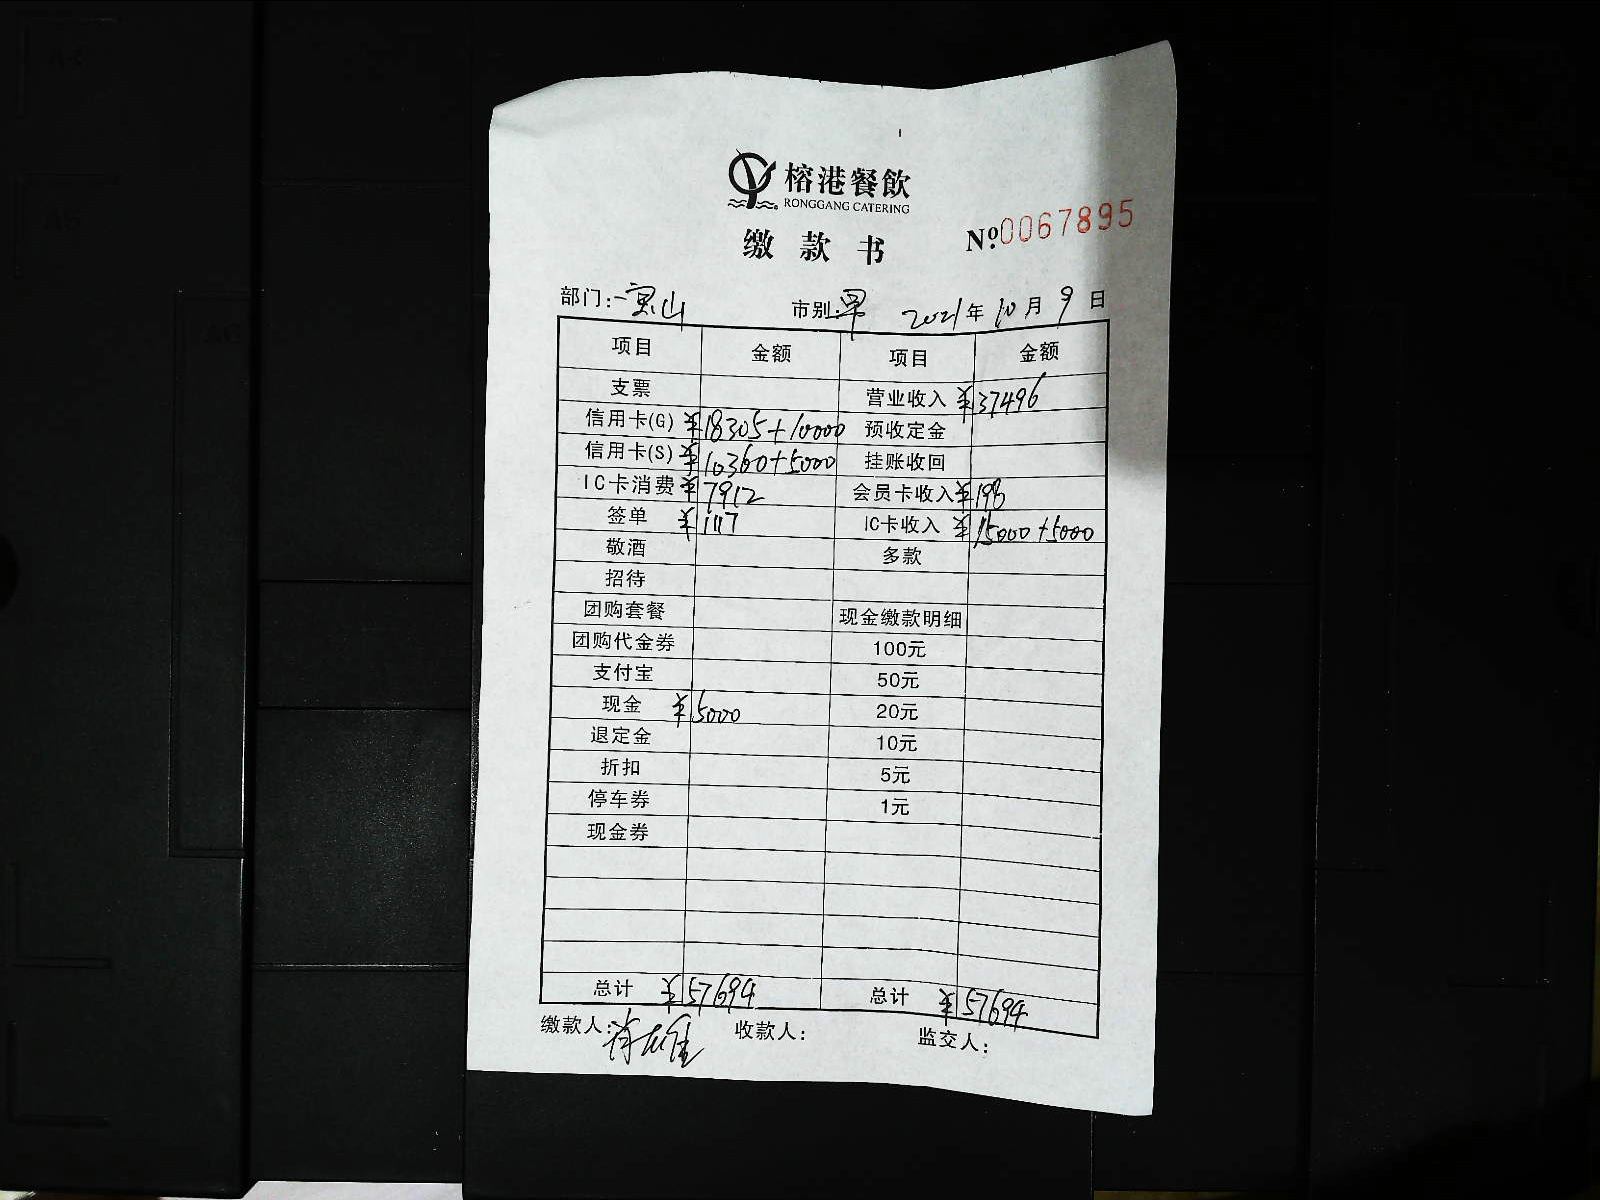 榕港餐飲
RONGGANG CATERING
缴款书 Nº:0067895
部门:宝山 市别:早 2021年10月9日
项目 金额 项目 金额
支票 营业收入 ¥37496
信用卡(G) ¥18305+10000 预收定金
信用卡(S) ¥10360+5000 挂账收回
IC卡消费 ¥7912 会员卡收入 ¥198
签单 ¥1117 IC卡收入 ¥15000+5000
敬酒 多款
招待
团购套餐 现金缴款明细
团购代金券 100元
支付宝 50元
现金 ¥5000 20元
退定金 10元
折扣 5元
停车券 1元
现金券
总计 ¥57694 总计 ¥57694
缴款人: 收款人: 监交人: